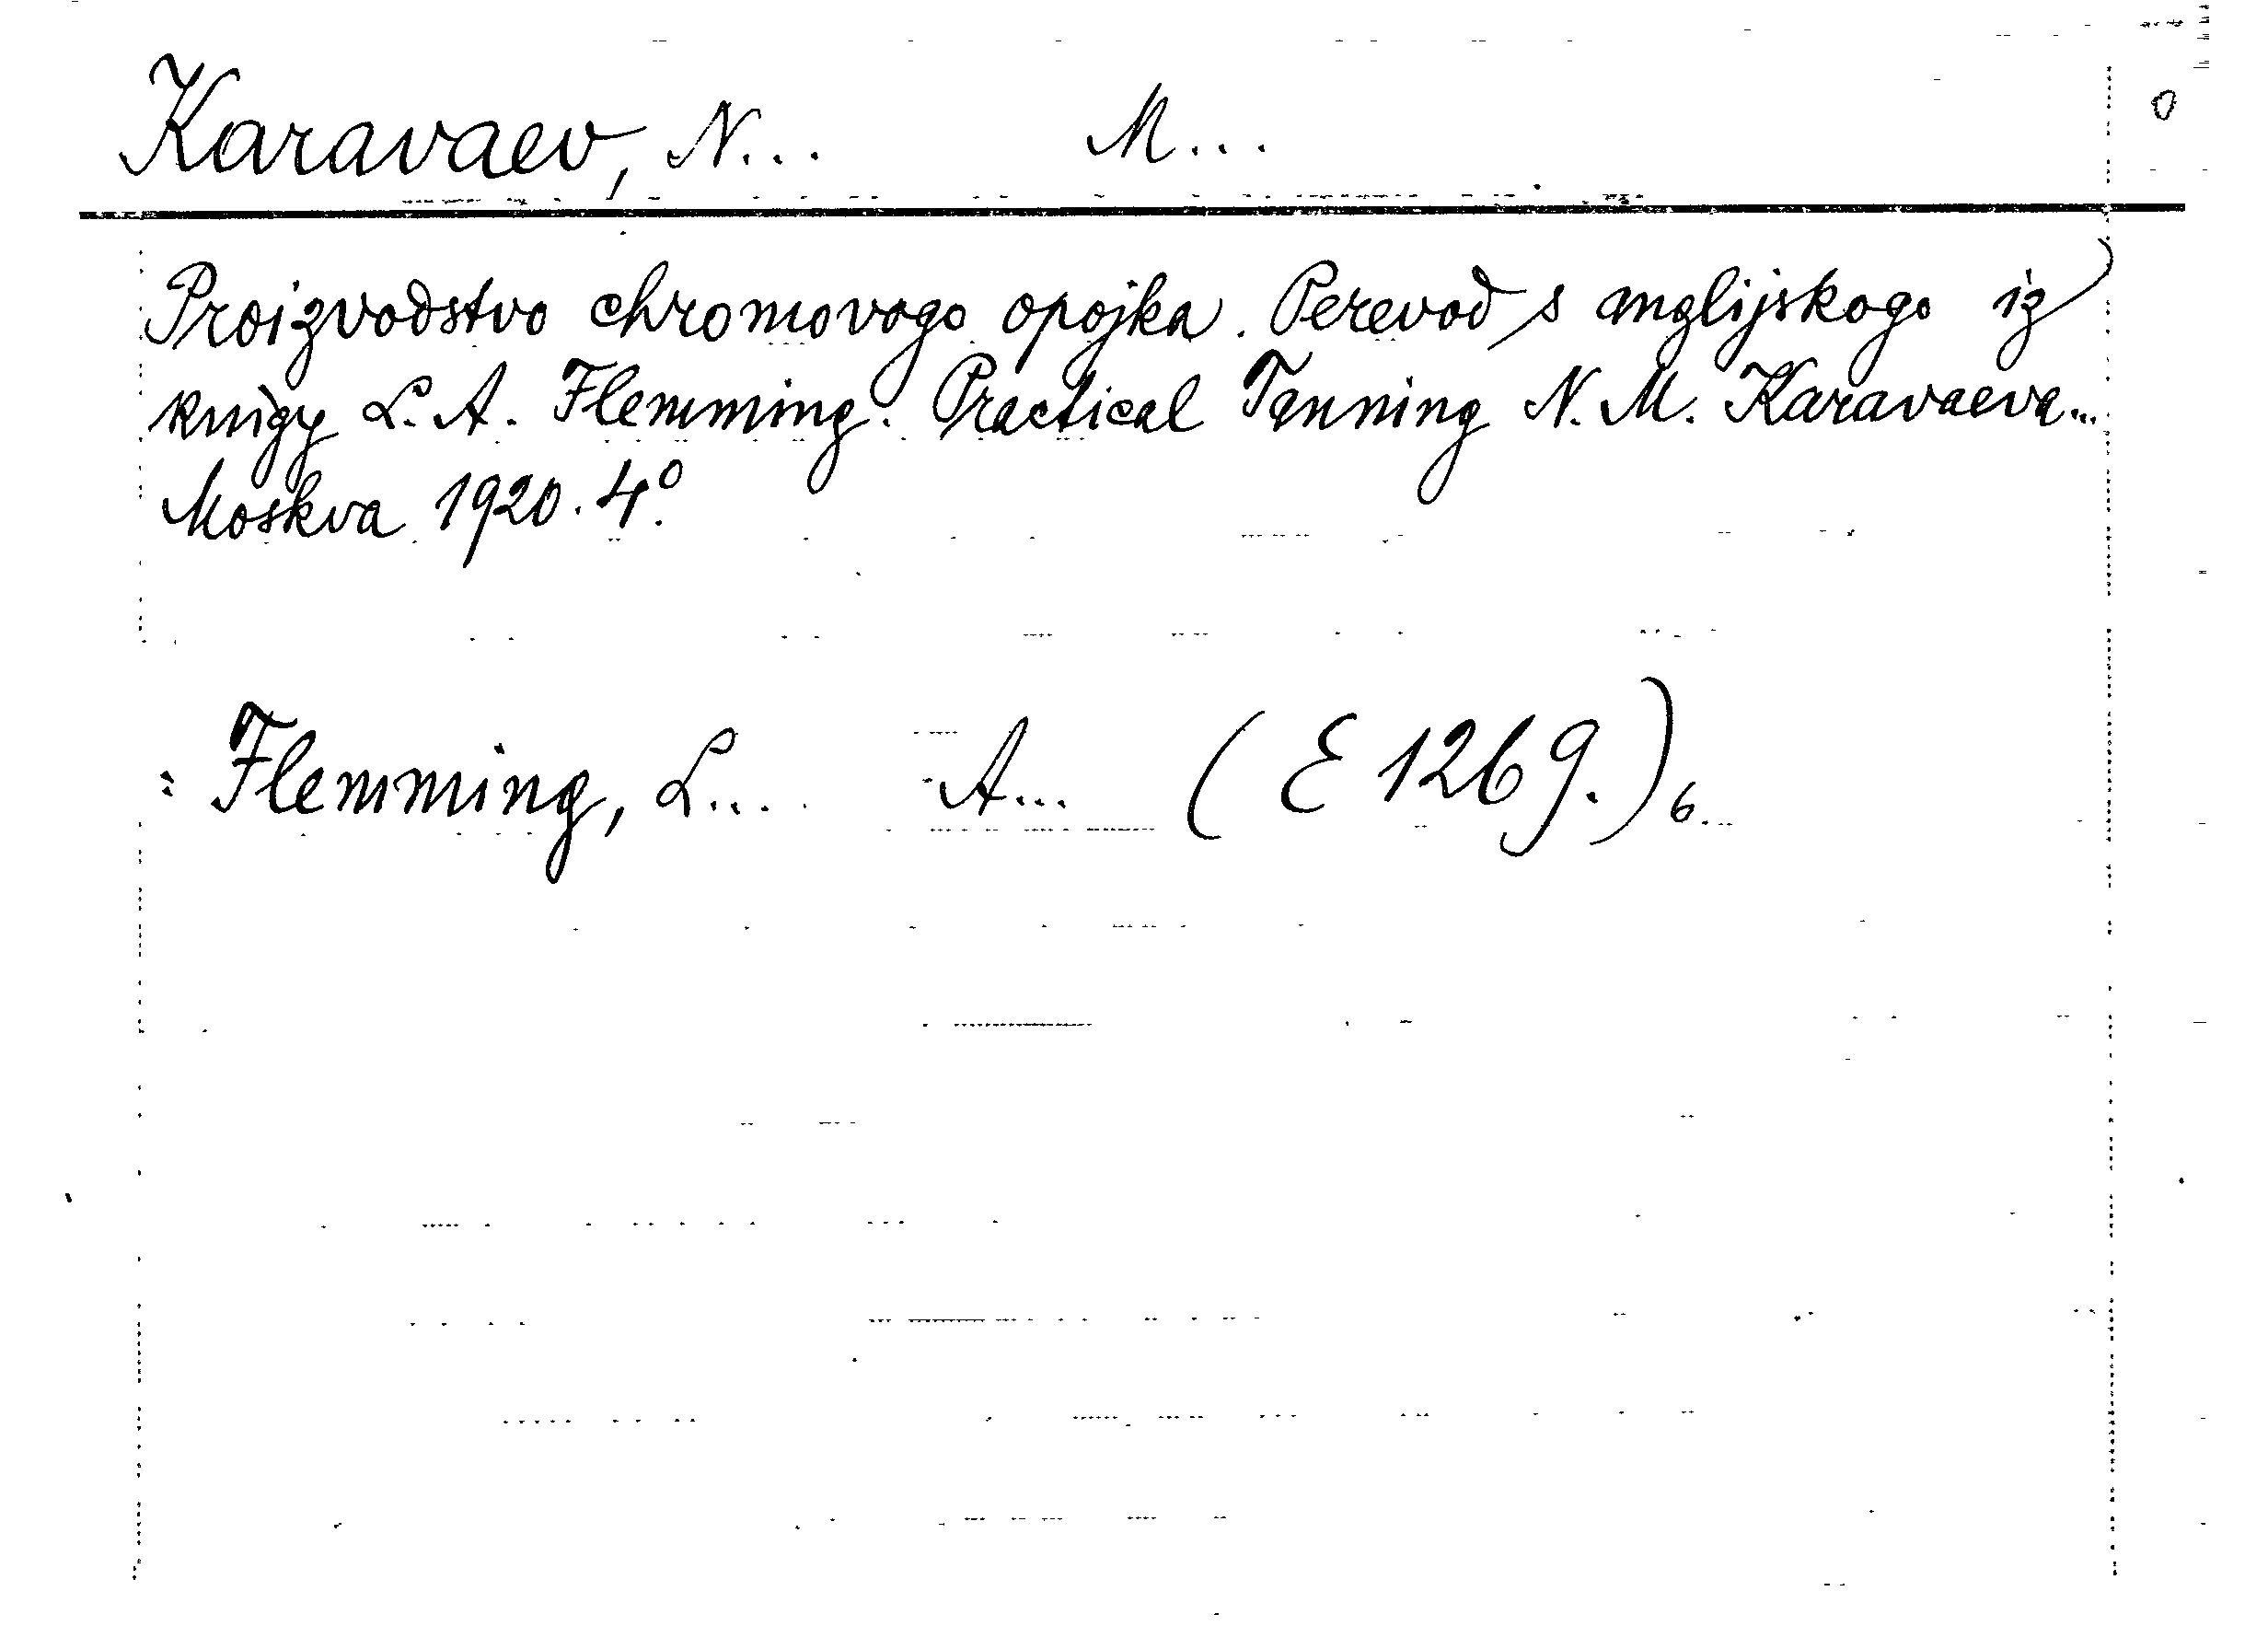 Karavaev, N... M... 0
Proizvodstvo chromovogo opojka. Perevod s anglijskogo iz
knigy L. A. Flemming. Practical Tanning N. M. Karavaeva...
Moskva 1920. 4°.
: Flemming, L.... A... (E 1269.) 6.